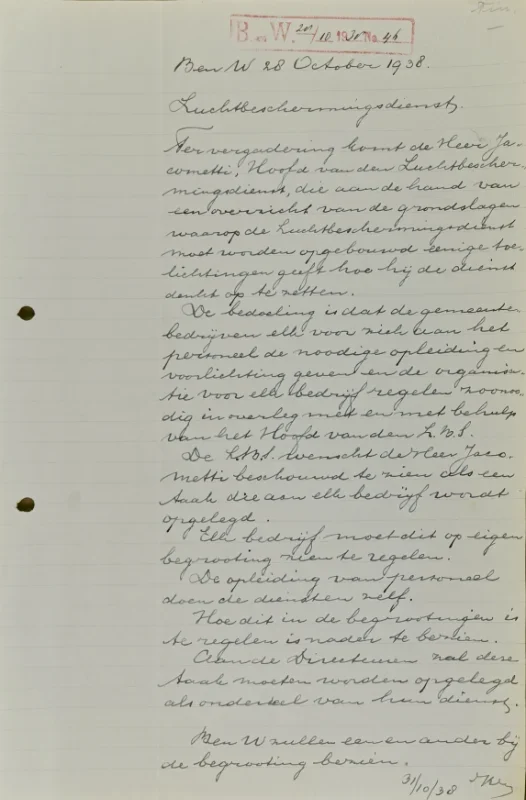 Fin.
B en W. 28/10 1938 No. 46
B en W 28 October 1938.
Luchtbeschermingsdienst.
Ter vergadering komt de Heer Ja-
cometti, Hoofd van den Luchtbescher-
mingsdienst, die aan de hand van
een overzicht van de grondslagen
waarop de Luchtbeschermingsdienst
moet worden opgebouwd eenige toe-
lichtingen geeft hoe hij de dienst
denkt op te zetten.
De bedoeling is dat de gemeente-
bedrijven elk voor zich aan het
personeel de noodige opleiding en
voorlichting geven en de organisa-
tie voor elk bedrijf regelen zoono-
dig in overleg met en met behulp
van het Hoofd van den L.B.S.
De L.B.S. wenscht de Heer Jaco-
metti beschouwd te zien als een
taak die aan elk bedrijf wordt
opgelegd.
Elk bedrijf moet dit op eigen
begrooting zien te regelen.
De opleiding van personeel
doen de diensten zelf.
Hoe dit in de begrootingen is
te regelen is nader te bezien.
Aan de Directeuren zal deze
taak moeten worden opgelegd
als onderdeel van hun dienst.
B en W zullen een en ander bij
de begrooting bezien.
31/10/38